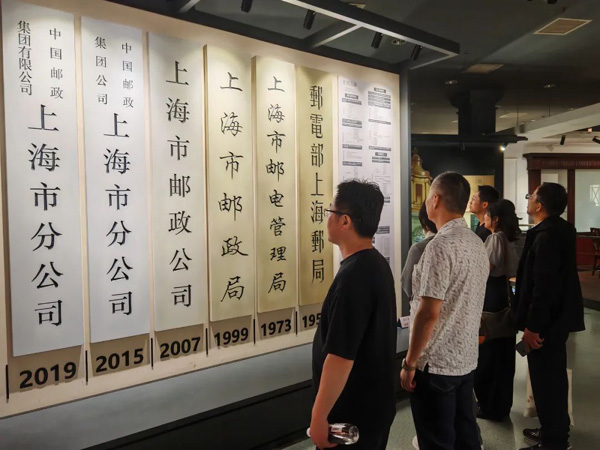 中国邮政
集团有限公司
上海市分公司
2019
中国邮政
集团公司
上海市分公司
2015
上海市邮政公司
2007
上海市邮政局
1999
上海市邮电管理局
1973
郵電部上海郵局